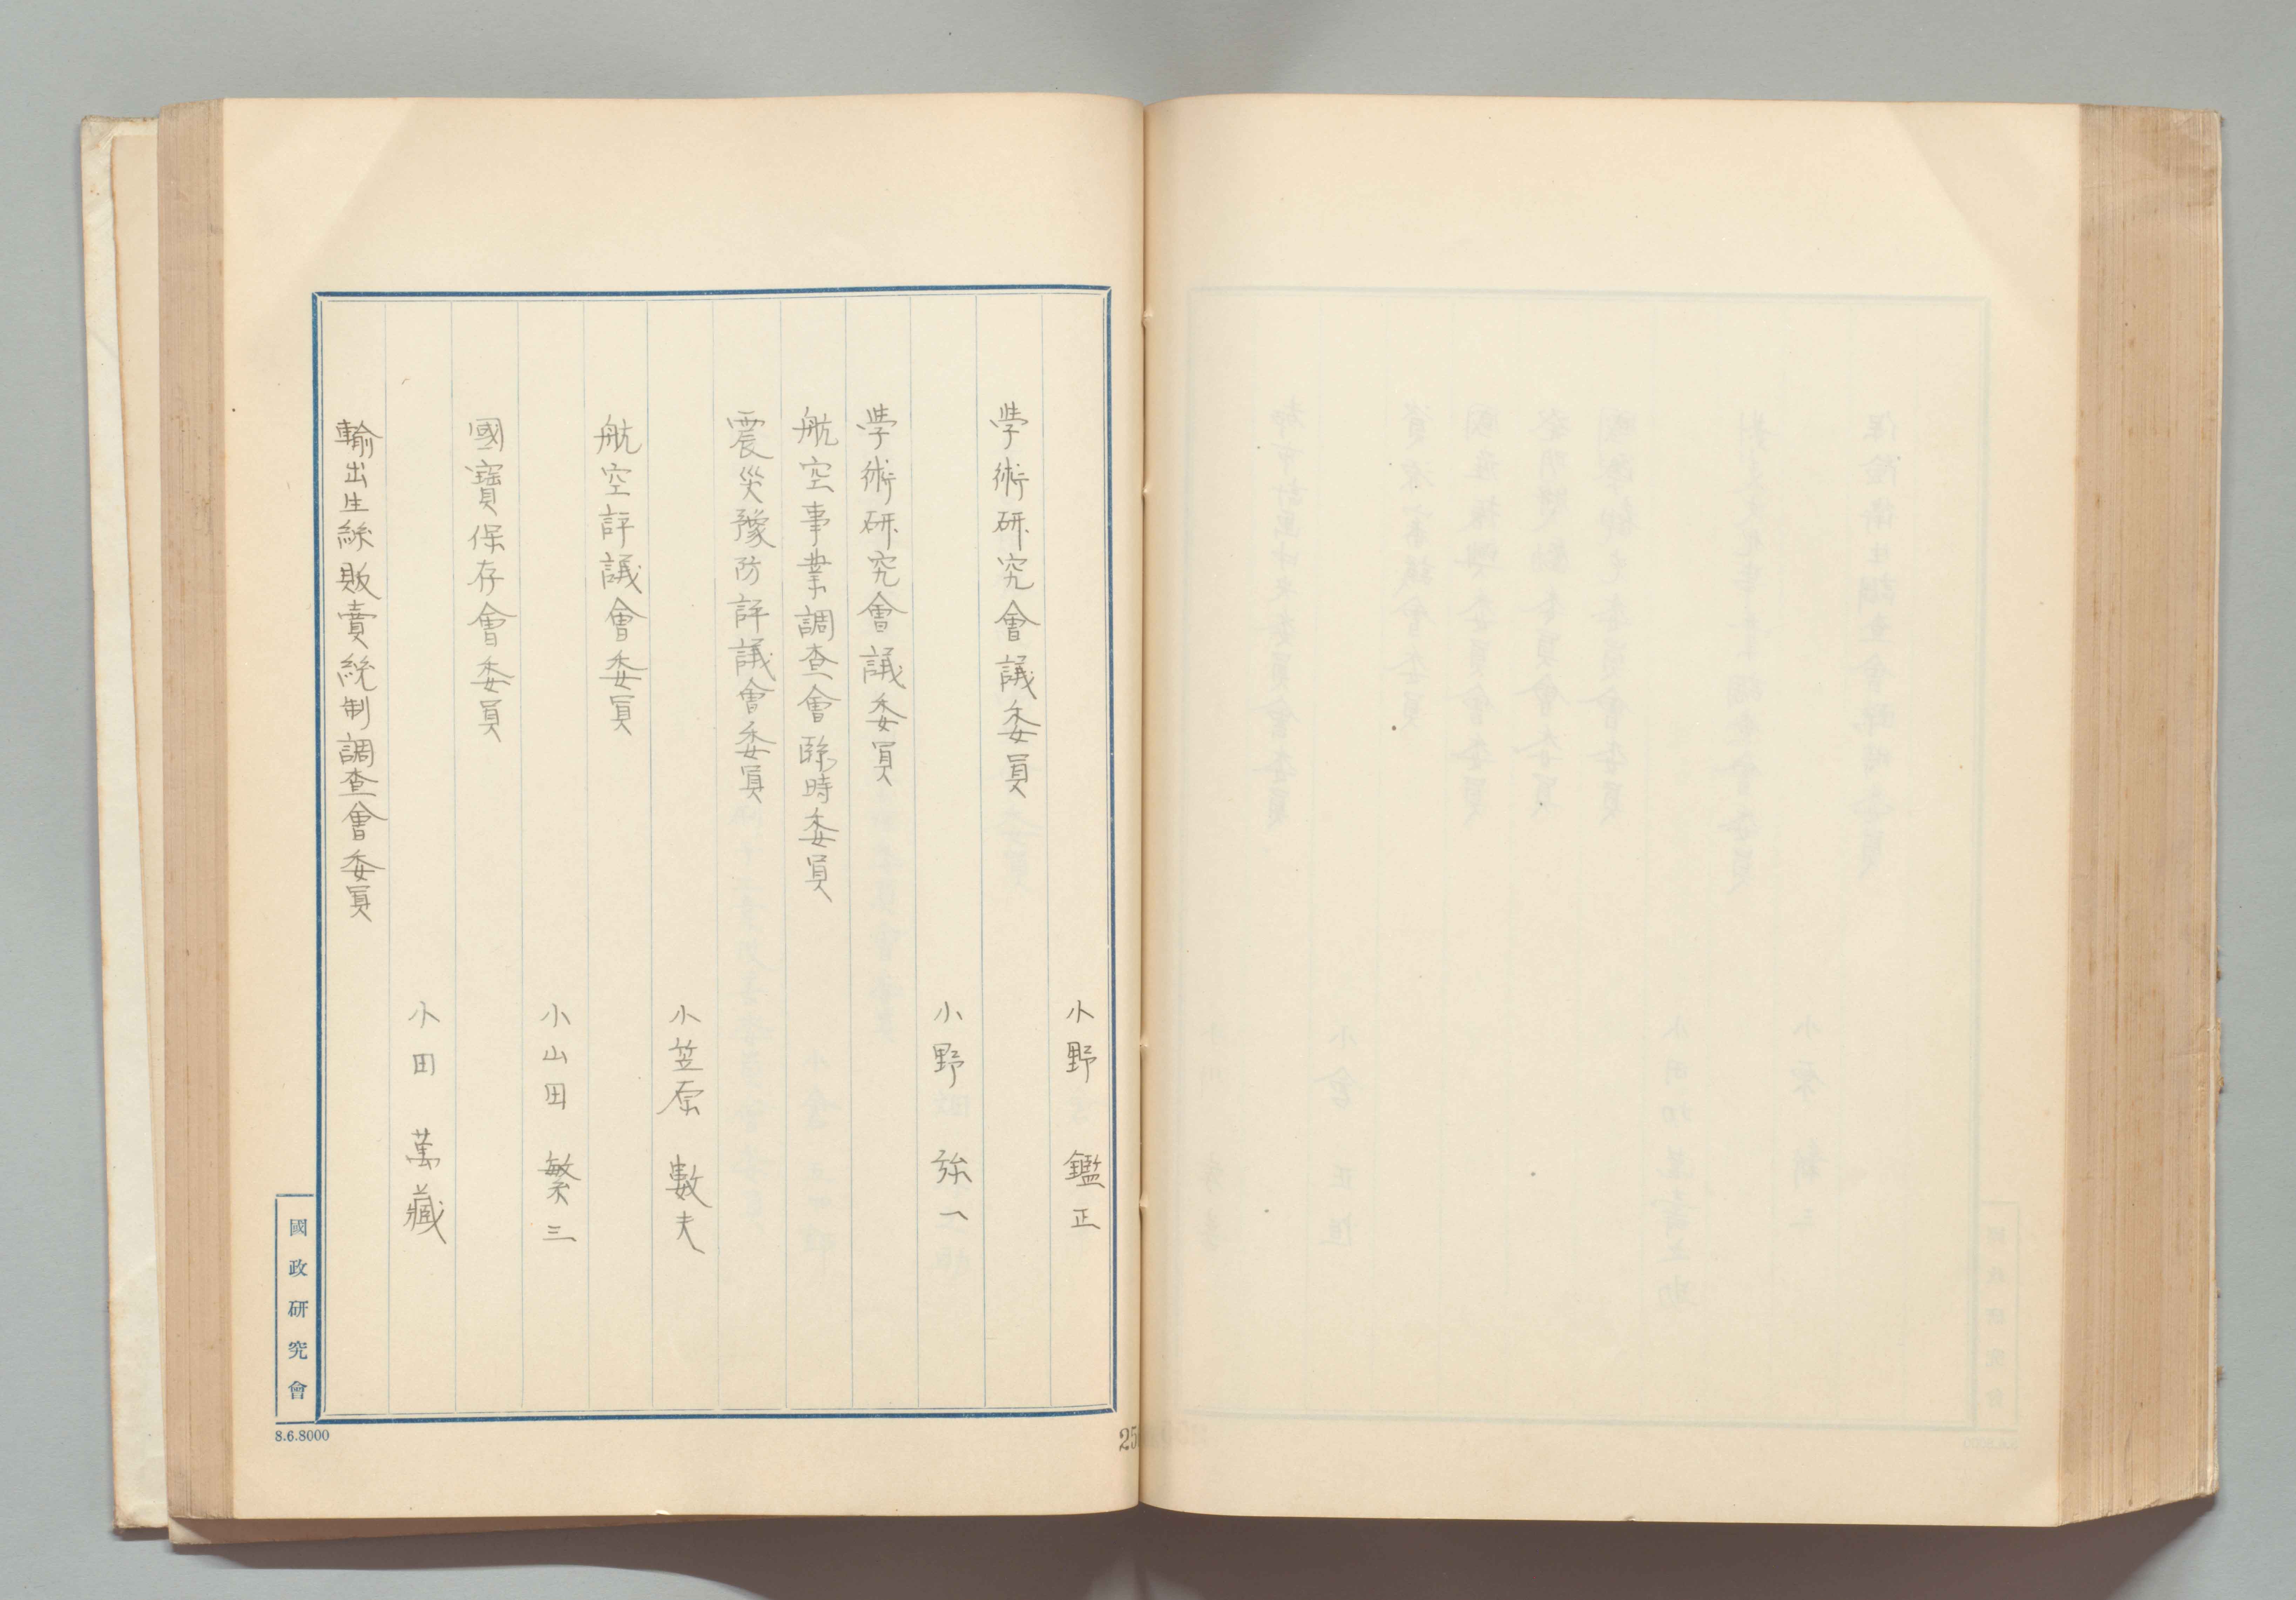 小野 鑑正
学術研究會議委員
小野 弥一
学術研究會議委員
航空事業調查會臨時委員
震災豫防評議會委員
小笠原 數夫
航空評議會委員
小山田 繁三
國寶保存會委員
小田 萬藏
輸出生絲販賣統制調查會委員
國政研究會
8.6.8000